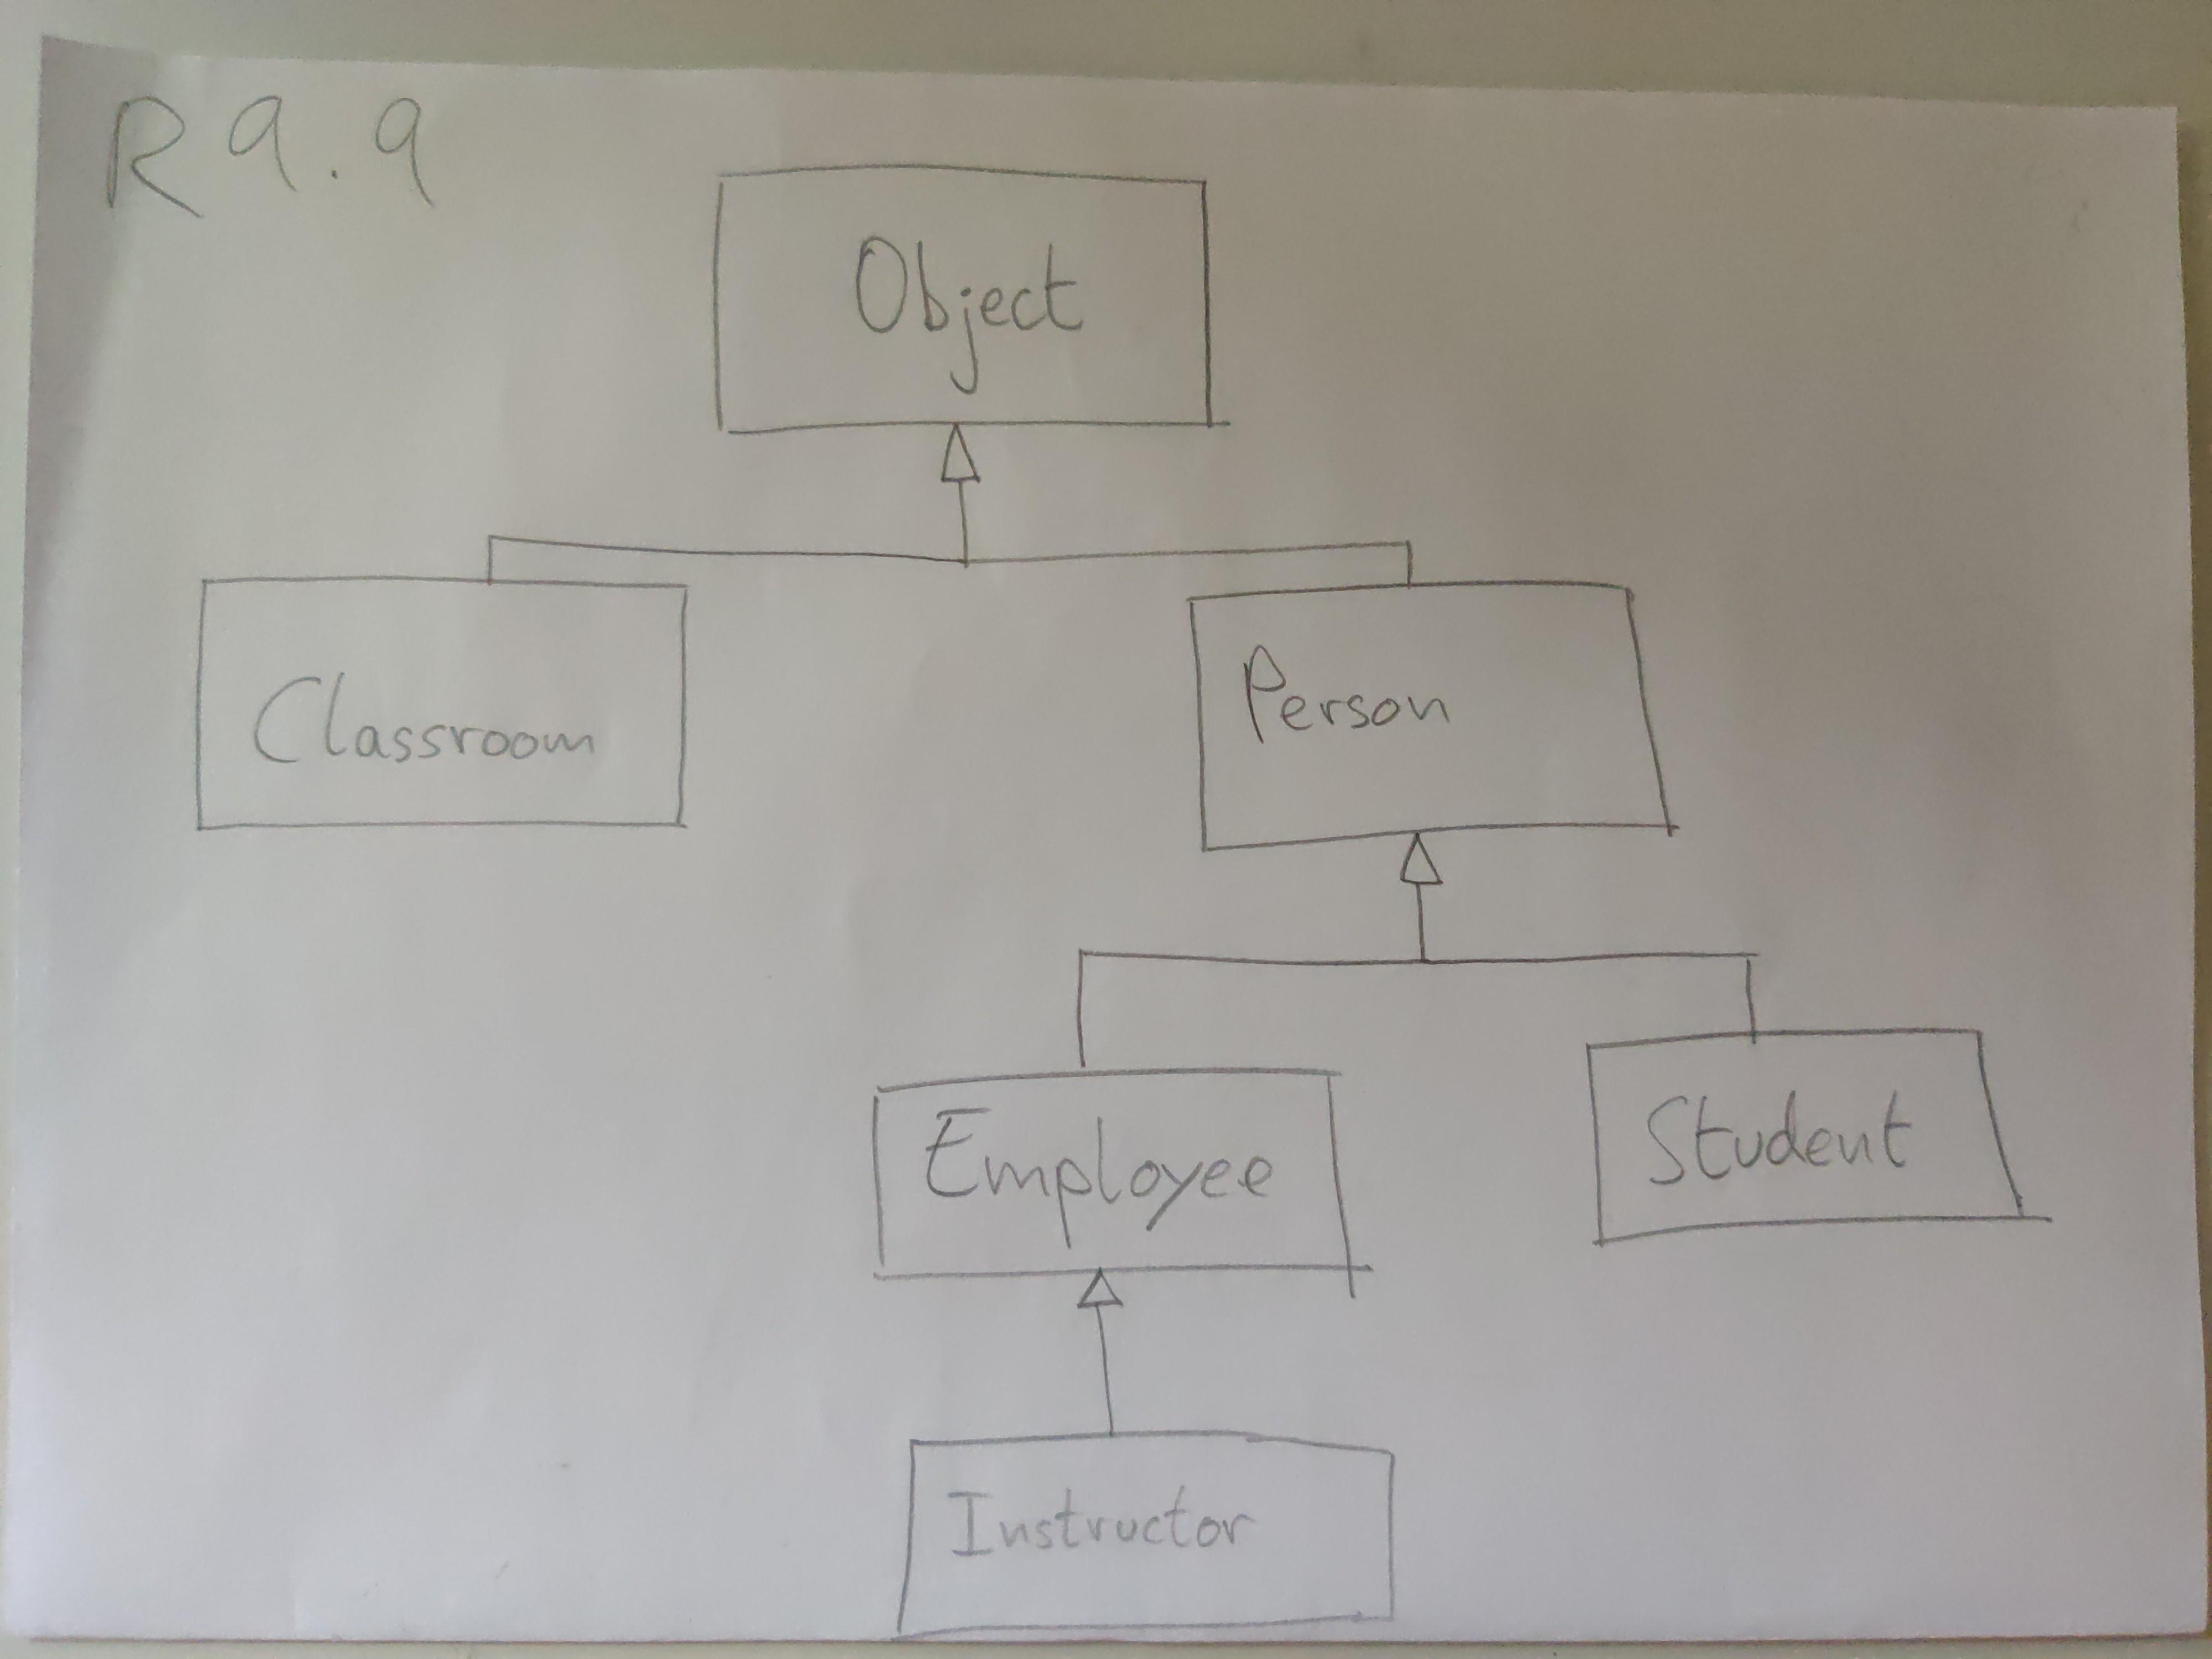 R9.9
Object
Classroom
Person
Employee
Student
Instructor